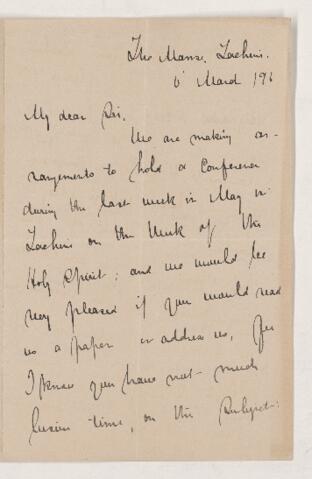 The Manse, Lachine.
6 March 19
My dear Sir,
We are making ar-
rangements to hold a Conference
during the last week in May in
Lachine on the Work of the
Holy Spirit; and we would be
very pleased if you would read
us a paper or address us, for
I know you have not much
time, on the Subject: